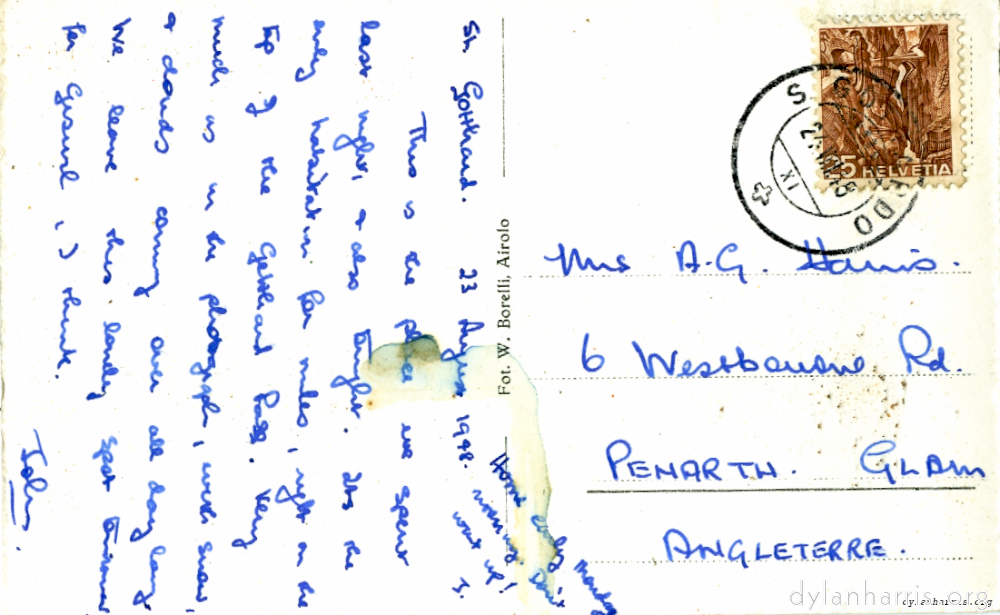 St. Gotthard. 23 August 1948.
This is the place we spent
last night, & also tonight. Its the
only habitation for miles, right on the
top of the Gotthard Pass. Very
much as in the photograph, with snow,
& clouds coming over all day long
We leave this lonely spot tomorrow
for Geneva, I think.
John.
Home early Monday
morning. Don't
wait up!
J.
Fot. W. Borelli, Airolo
S. GOTTARDO
XI
35 HELVETIA
Mrs A.G. Harris.
6 Westbourne Rd.
PENARTH. GLAM
ANGLETERRE.
dylanharris.org
dylanharris.org